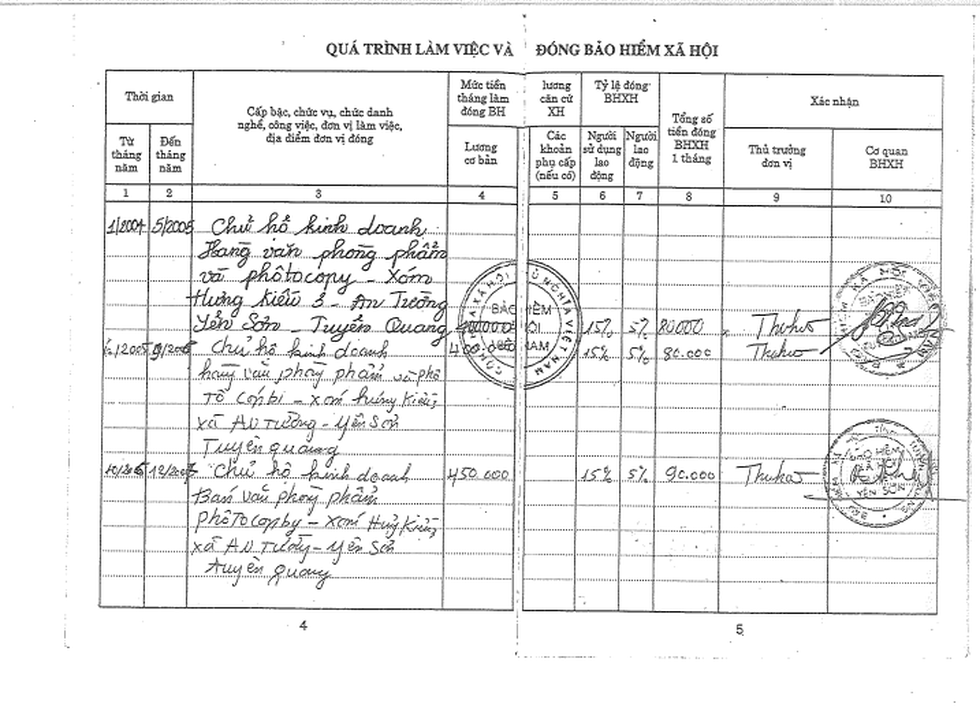 QUÁ TRÌNH LÀM VIỆC VÀ ĐÓNG BẢO HIỂM XÃ HỘI
Thời gian
Từ tháng năm
Đến tháng năm
Cấp bậc, chức vụ, chức danh
nghề, công việc, đơn vị làm việc,
địa điểm đơn vị đóng
Mức tiền lương
tháng làm căn cứ
đóng BH XH
Lương cơ bản
Các khoản phụ cấp (nếu có)
Tỷ lệ đóng BHXH
Người sử dụng lao động
Người lao động
Tổng số tiền đóng BHXH 1 tháng
Xác nhận
Thủ trưởng đơn vị
Cơ quan BHXH
1 2 3 4 5 6 7 8 9 10
1/2004 5/2005 Chủ hồ kinh doanh
Hang văn phong phẩm
và phôtocopy - Xóm
Hưng Kiều 3 - An Tường
Yên Sơn - Tuyên Quang 400000 15% 5% 80000
Chủ hộ kinh doanh 400.000 15% 5% 80.000
hang văn phong phẩm và phô
tô - xóm hưng Kiều
xã An Tường - Yên Sơn
Tuyên quang
Chủ hộ kinh doanh 450.000 15% 5% 90.000
Ban văn phong phẩm
phôTocopby - xóm Hưng Kiều
xã An Tường - Yên Sơn
tuyên quang
BẢO HIỂM
YÊN SƠN
4
5